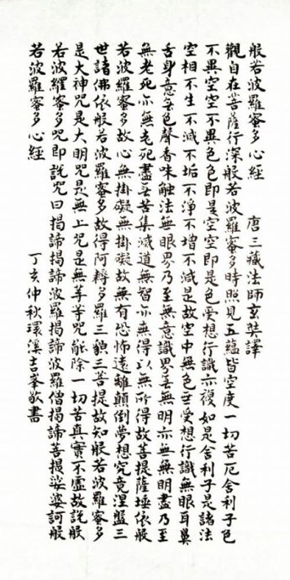 般若波羅蜜多心經　唐三藏法師玄奘譯
觀自在菩薩行深般若波羅蜜多時照見五蘊皆空度一切苦厄舍利子色
不異空空不異色色即是空空即是色受想行識亦復如是舍利子是諸法
空相不生不滅不垢不淨不增不減是故空中無色無受想行識無眼耳鼻
舌身意無色聲香味觸法無眼界乃至無意識界無無明亦無無明盡乃至
無老死亦無老死盡無苦集滅道無智亦無得以無所得故菩提薩埵依般
若波羅蜜多故心無掛礙無掛礙故無有恐怖遠離顛倒夢想究竟涅槃三
世諸佛依般若波羅蜜多故得阿耨多羅三藐三菩提故知般若波羅蜜多
是大神咒是大明咒是無上咒是無等等咒能除一切苦真實不虛故說般
若波羅蜜多咒即說咒曰揭諦揭諦波羅揭諦波羅僧揭諦菩提娑婆訶般
若波羅蜜多心經　丁亥仲秋環溪吉峯敬書